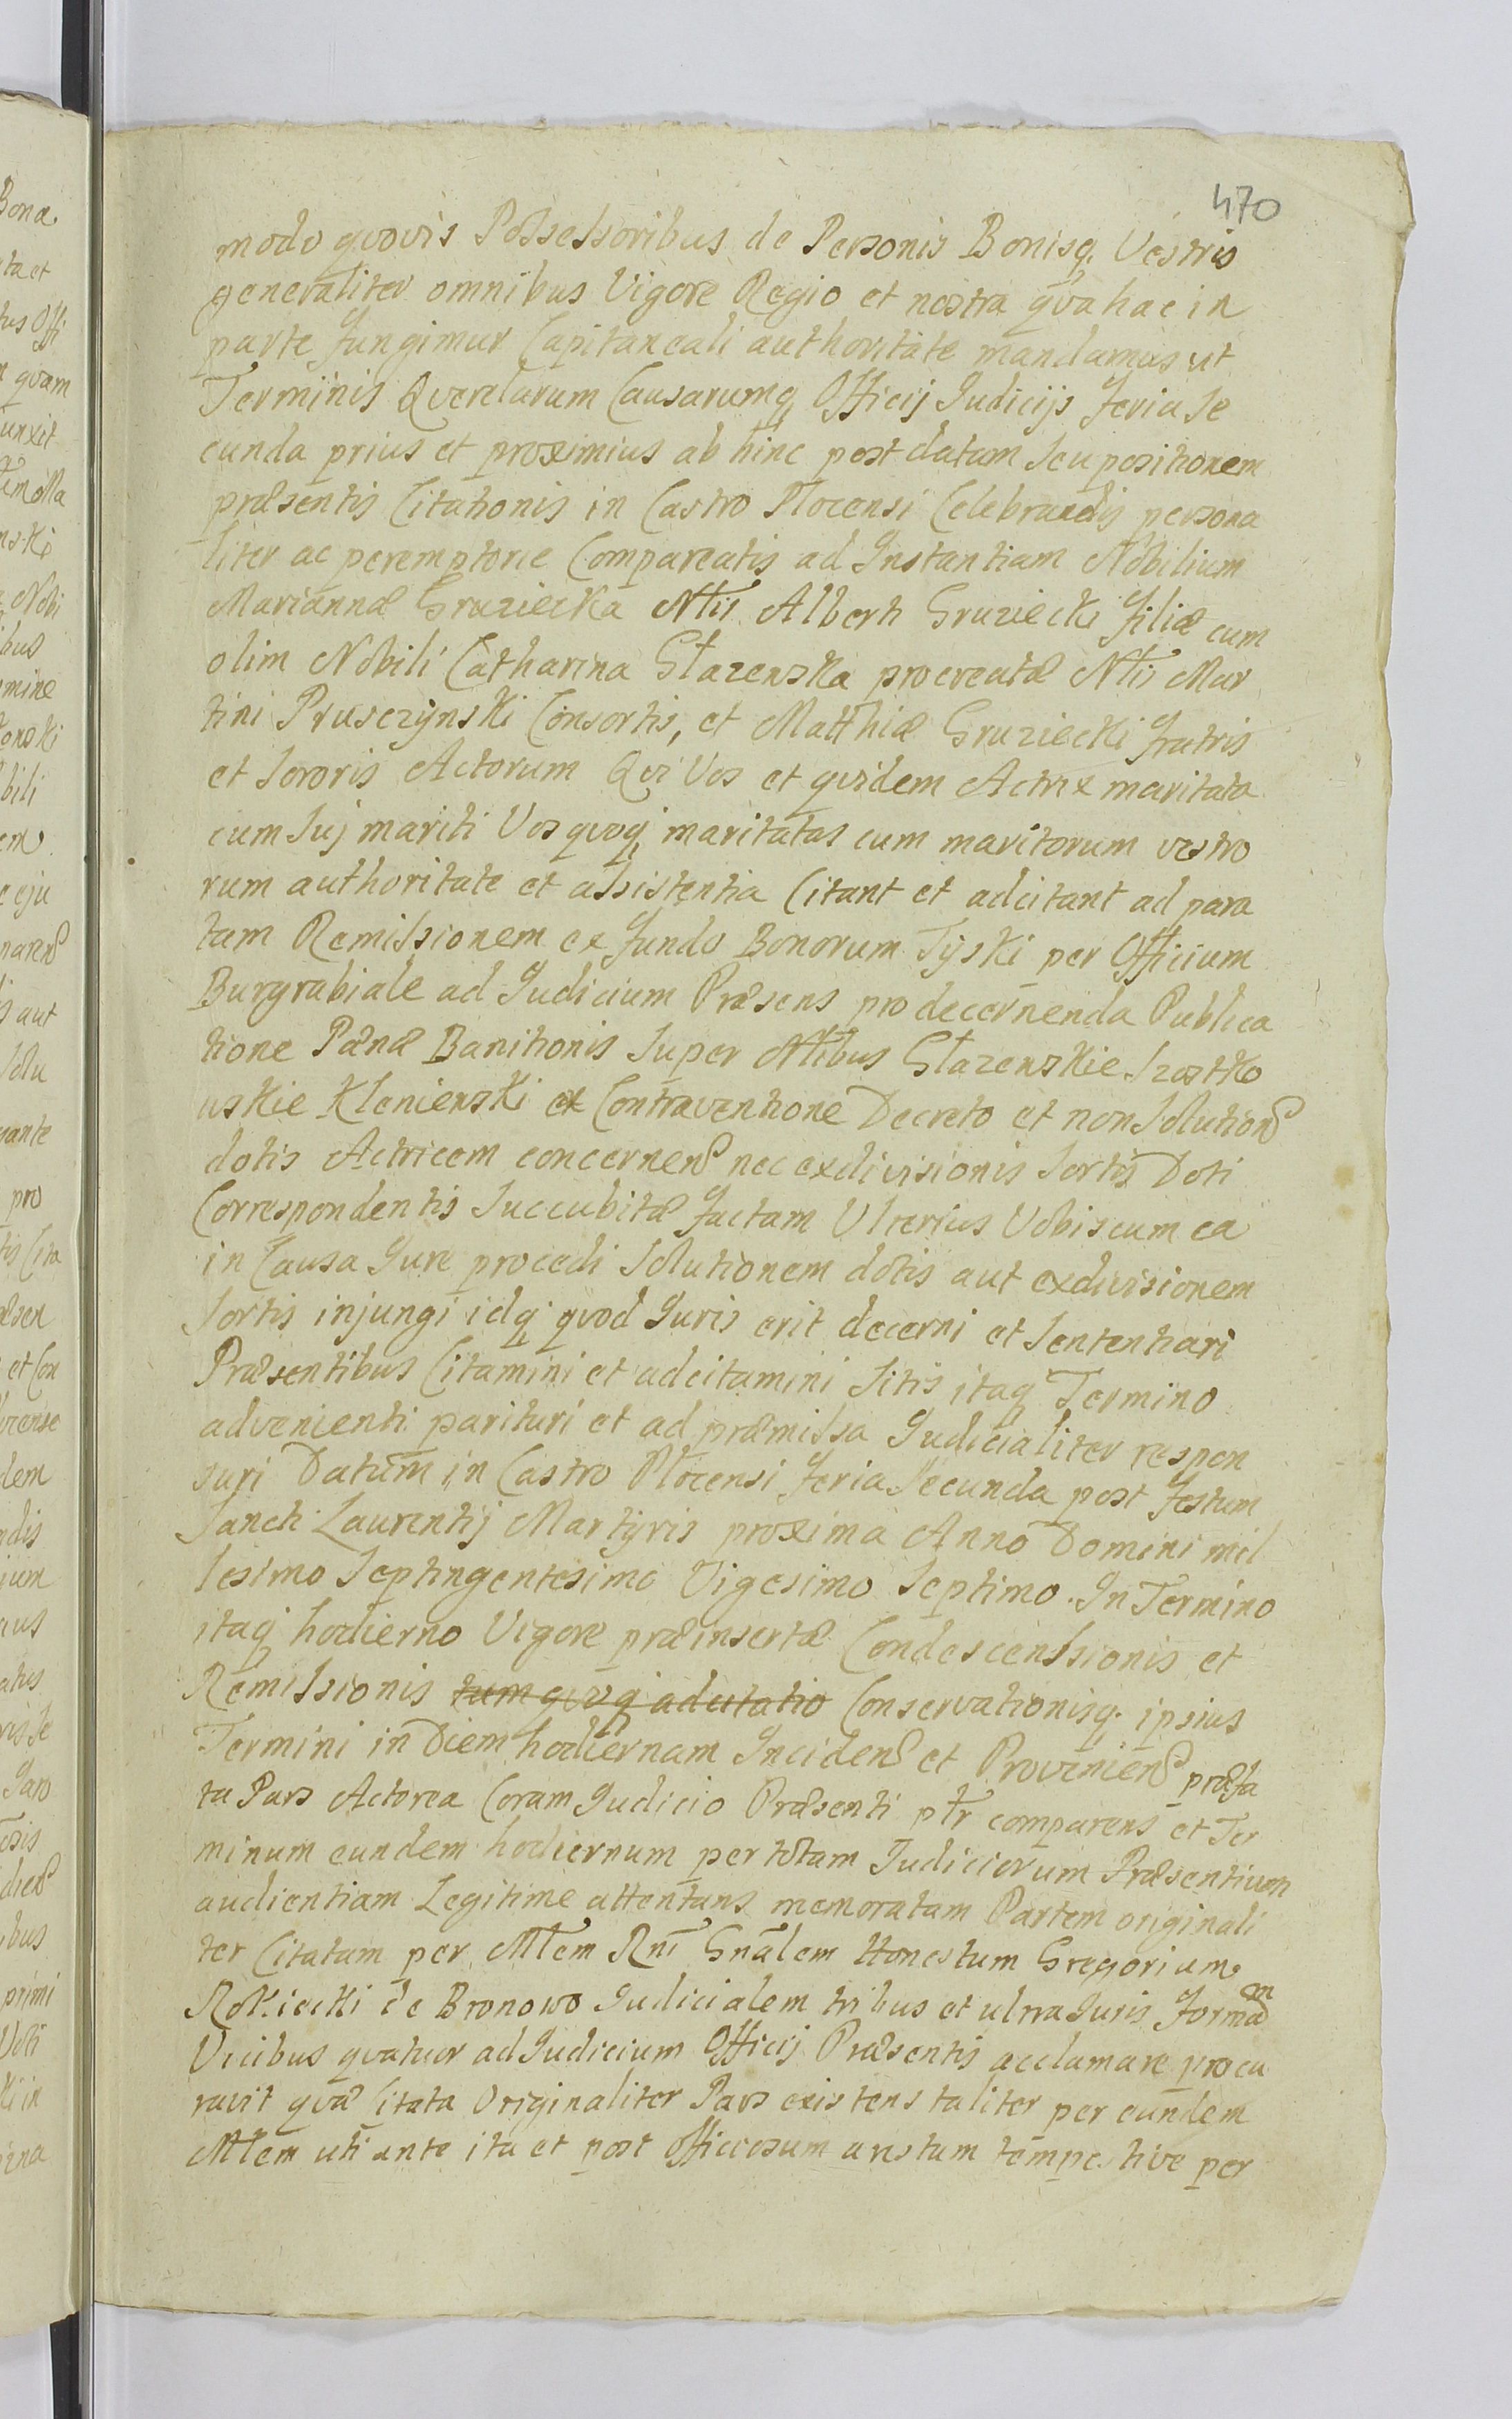 470
modo qvovis Possessoribus de Personis Bonisq. Vestris
generaliter omnibus Vigore Regio et nostra qva hac in
parte fungimur Capitaneali authoritate mandamus ut
Terminis Qverelarum Causarumq Officij Iudicijs feria Se
cunda prius et proximius ab hinc post datam seu positionem
præsentis Citationis in Castro Plocensi Celebrandis persona
liter ac peremptorie Compareatis ad Instantiam Nobilium
Mariannæ Gruziecka Nlis Alberti Gruziecki filiæ cum
olim Nobili Catharina Glazenska procreatæ Nlis Mar
tini Prusczynski Consortis, et Matthiæ Gruziecki fratris
et Sororis Actorum Qvi Vos et qvidem Actrix maritata
cum Suj mariti Vos qvoq maritatas cum maritorum vestro
rum authoritate et assistentia Citant et adcitant ad para
tam Remissionem ex fundo Bonorum Tyski per Officium
Burgrabiale ad Iudicium Præsens pro decernenda Publica
tione Pænæ Banitionis Super Nlibus Glazenskie Szostko
uskie Klenienski ex Contraventione Decreto et non Solutione
dotis Actricem concernen nec exdivisionis Sortis Doti
Correspondentis Succubitæ factam Ulterius Vobiscum ea
in Causa Iure procedi Solutionem dotis aut exdivisionem
Sortis injungi idq qvod Iuris erit decerni et Sententiari
Præsentibus Citamini et adcitamini Sitis itaq Termino
advenienti parituri et ad præmissa Iudicialiter respon
suri Datum in Castro Plocensi feria Secunda post festum
Sancti Laurentij Martyris proxima Anno Domini mil
lesimo Septingentesimo Vigesimo Septimo. In Termino
itaq hodierno Vigore præinsertæ Condescenssionis et
Remissionis tum qvoq adcitatio Conservationisq. ipsius
Termini in Diem hodiernam Inciden et Provenien præfa
ta Pars Actorea Coram Iudicio Præsenti ptr comparens et Ter
minum eundem hodiernum per totam Iudiciorum Præsentium
audientiam Legitime attentans memoratam Partem originali
ter Citatam per Mlem Rni Gnalem Honestum Gregorium
Rokicki de Bronowo Iudicialem tribus et ultra Iuris formam
Vicibus qvatuor ad Iudicium Officij Præsentis acclamare procu
ravit qvæ Citata Originaliter Pars existens taliter per eundem
Mlem uti ante ita et post Officiosum arestum tempestive per